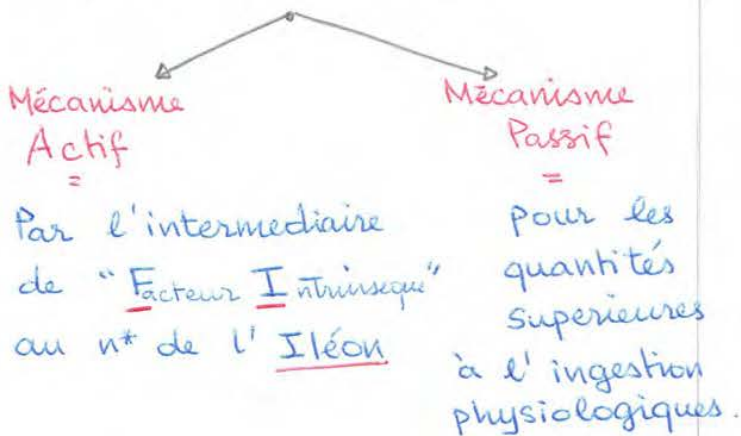 Mécanisme
Actif
Par l'intermediaire
de "Facteur Intrinseque"
au n* de l' Iléon
Mécanisme
Passif
pour les
quantités
superieures
à l'ingestion
physiologiques.